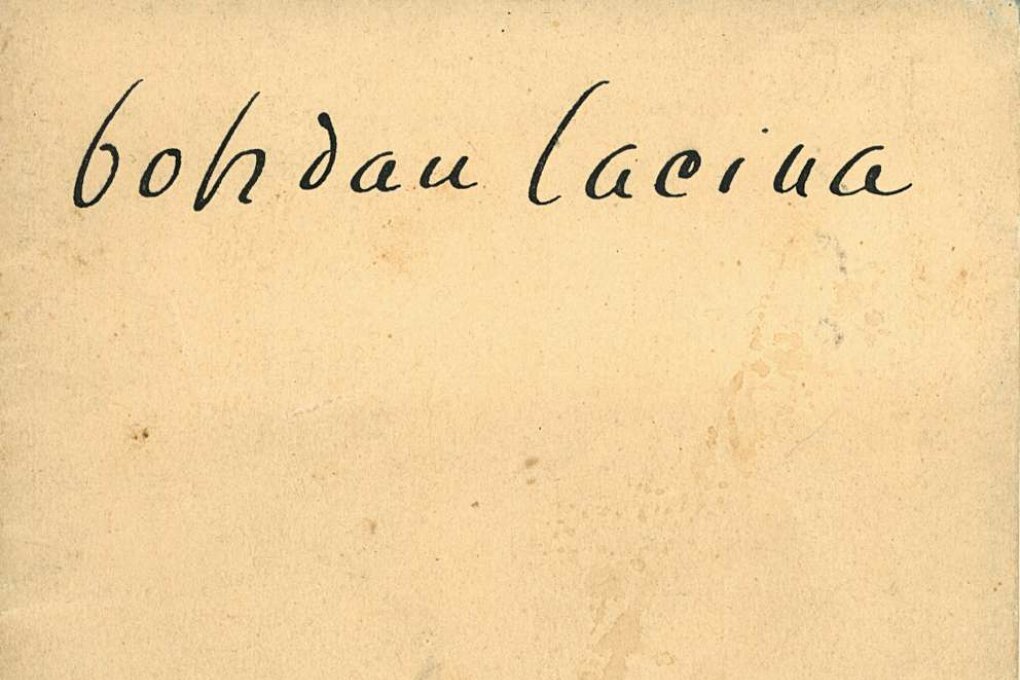 bohdan lacina